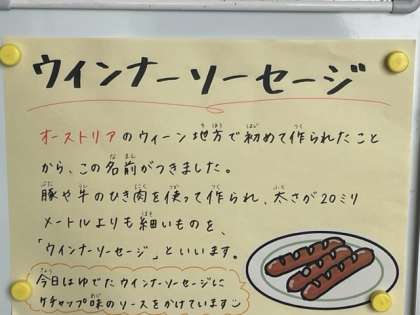 ウインナーソーセージ
オーストリアのウィーン地方で初めて作られたこと
から、この名前がつきました。
豚や牛のひき肉を使って作られ、太さが20ミリ
メートルよりも細いものを、
「ウインナーソーセージ」といいます。
今日はゆでたウインナーソーセージに
ケチャップ味のソースをかけています